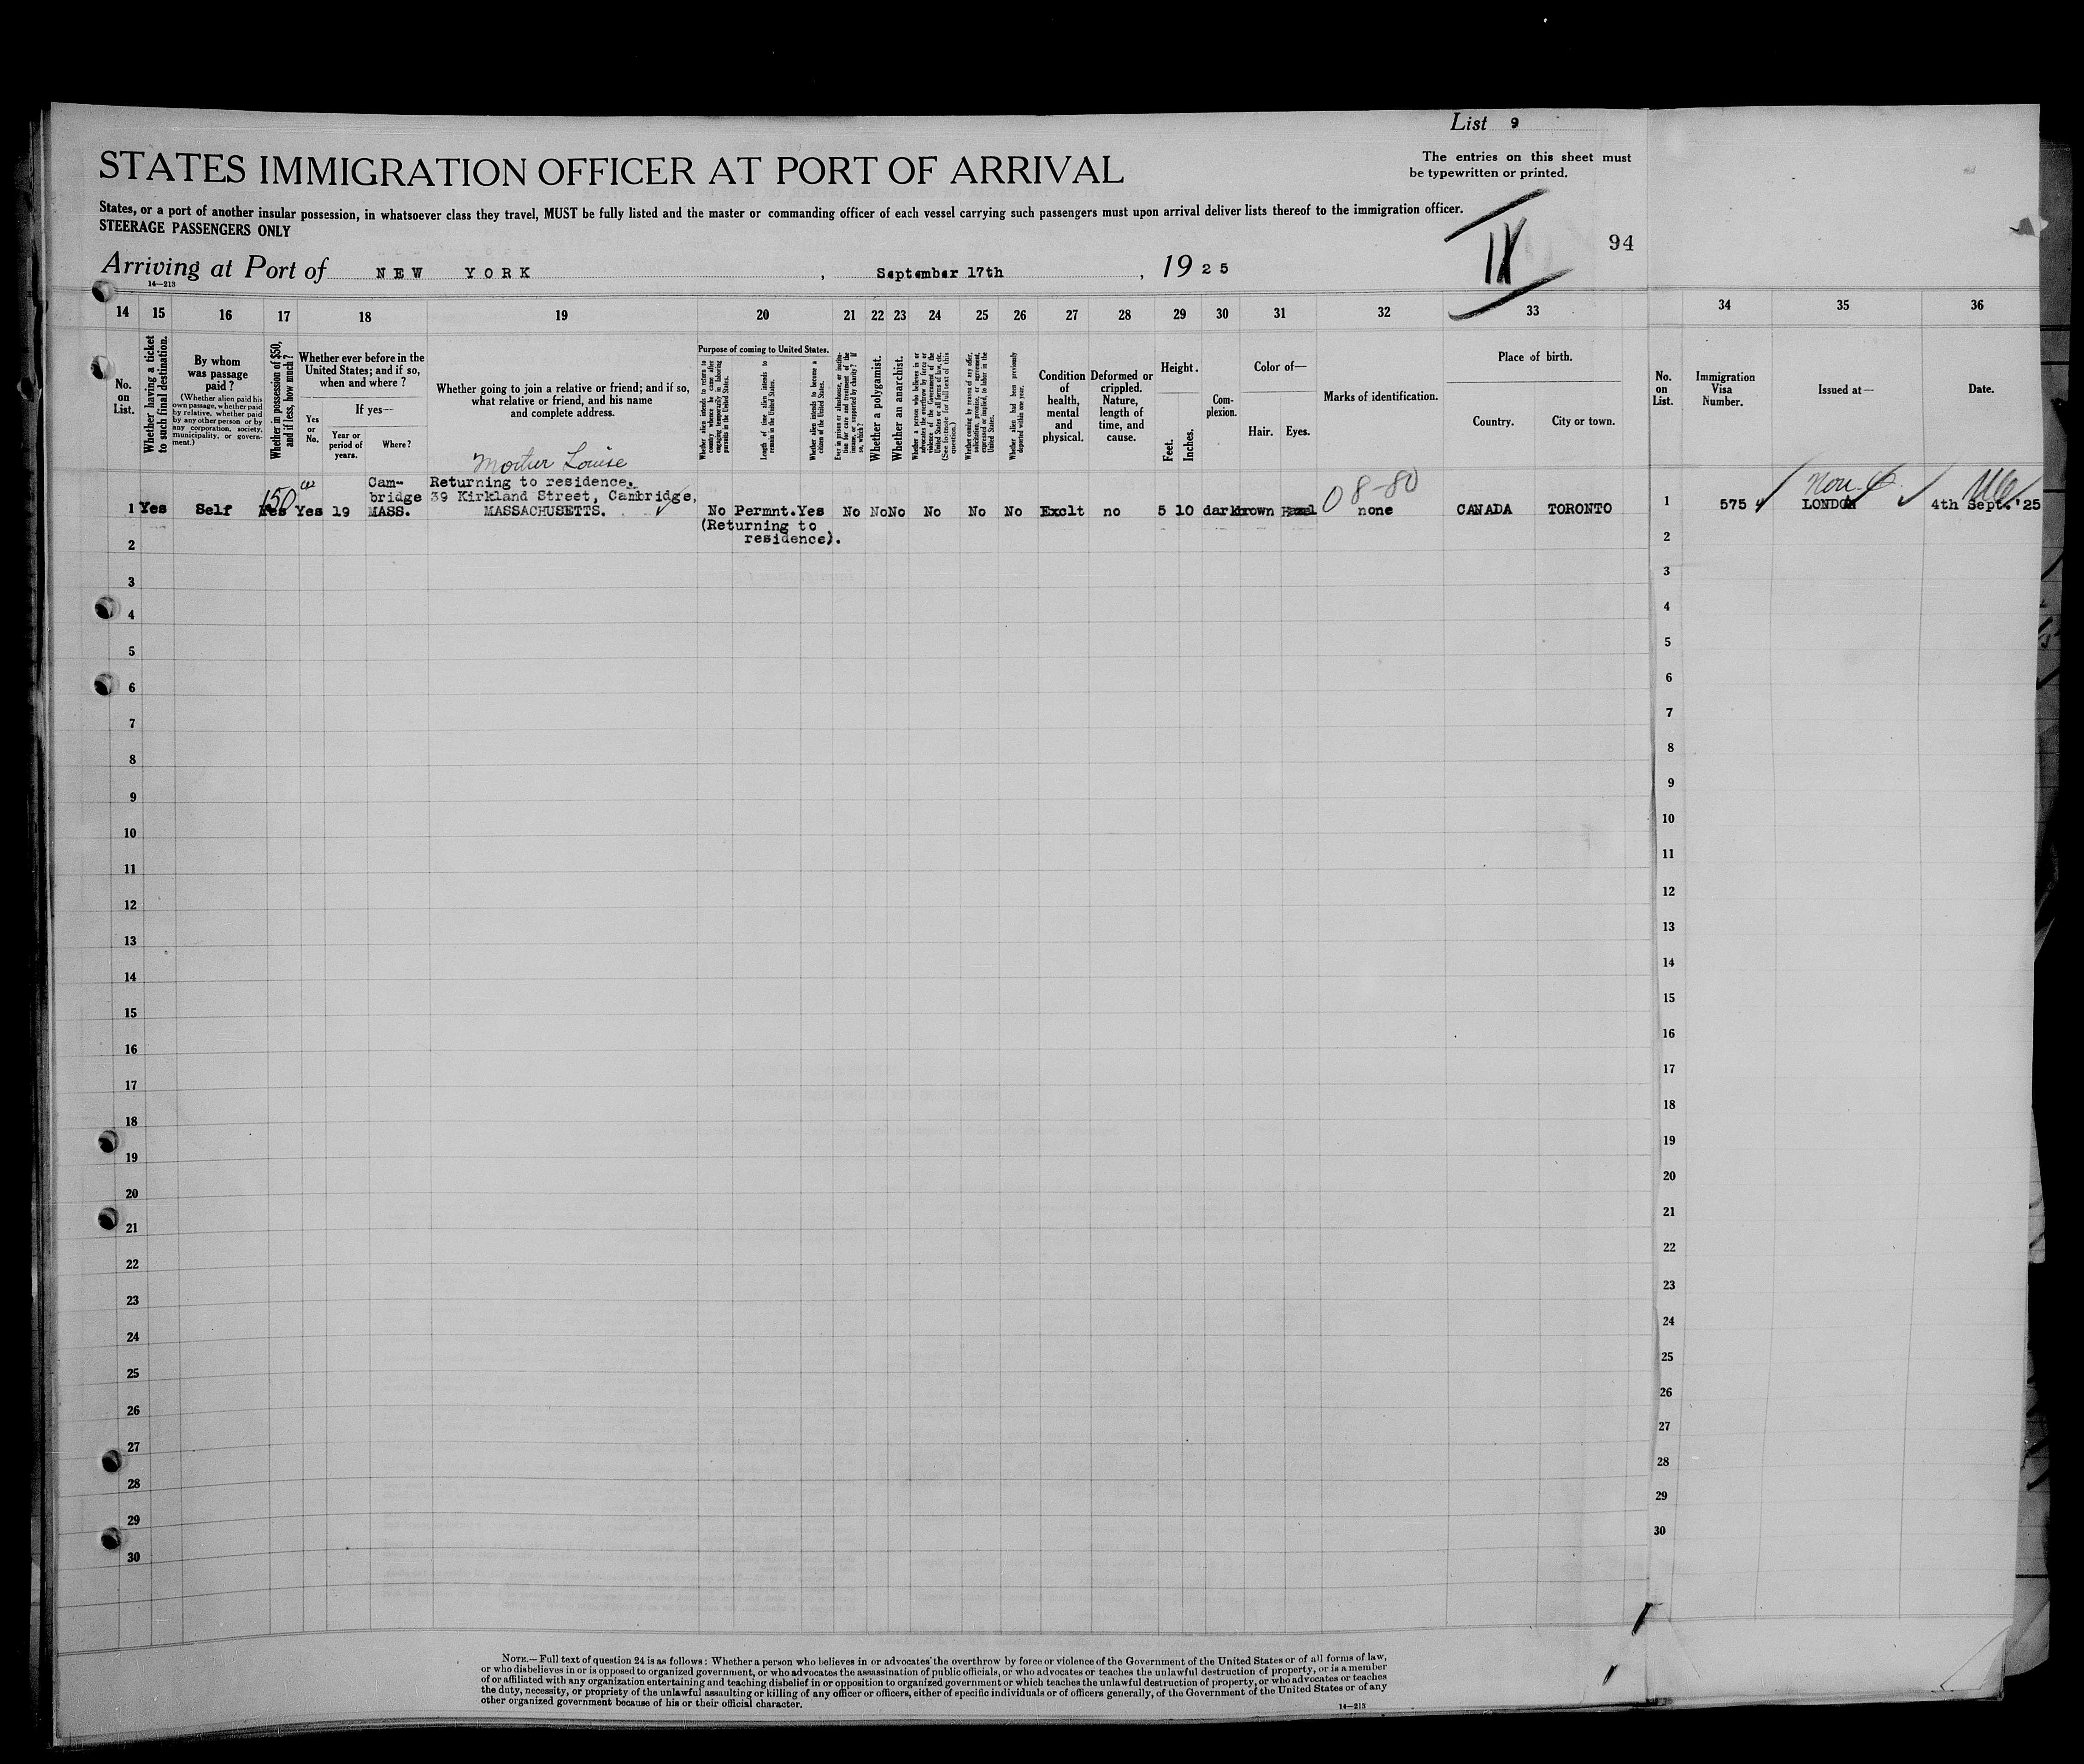 List 9
The entries on this sheet must
be typewritten or printed.
STATES IMMIGRATION OFFICER AT PORT OF ARRIVAL
States, or a port of another insular possession, in whatsoever class they travel, MUST be fully listed and the master or commanding officer of each vessel carrying such passengers must upon arrival deliver lists thereof to the immigration officer.
STEERAGE PASSENGERS ONLY
IX
94
Arriving at Port of NEW YORK, September 17th, 1925
14—213
14 15 16 17 18 19 20 21 22 23 24 25 26 27 28 29 30 31 32 33 34 35 36
No. on List.
Whether having a ticket to such final destination.
By whom was passage paid?
(Whether alien paid his own passage, whether paid by relative, whether paid by any other person or by any corporation, society, municipality, or government.)
Whether in possession of $50, and if less, how much?
Whether ever before in the United States; and if so, when and where?
Yes or No.
If yes—
Year or period of years.
Where?
Whether going to join a relative or friend; and if so, what relative or friend, and his name and complete address.
Purpose of coming to United States.
Whether alien intends to return to country whence he came after engaging temporarily in laboring pursuits in the United States.
Length of time alien intends to remain in the United States.
Whether alien intends to become a citizen of the United States.
Ever in prison or almshouse, or institution for care and treatment of the insane, or supported by charity? If so, which?
Whether a polygamist.
Whether an anarchist.
Whether a person who believes in or advocates the overthrow by force or violence of the Government of the United States or all forms of law, etc. (See footnote for full text of this question.)
Whether coming by reason of any offer, solicitation, promise, or agreement, expressed or implied, to labor in the United States.
Whether alien had been previously deported within one year.
Condition of health, mental and physical.
Deformed or crippled. Nature, length of time, and cause.
Height.
Feet.
Inches.
Complexion.
Color of—
Hair.
Eyes.
Marks of identification.
Place of birth.
Country.
City or town.
No. on List.
Immigration Visa Number.
Issued at—
Date.
Louise
08-80
150
Returning to residence.
Cambridge 39 Kirkland Street, Cambridge,
1 Yes Self Yes Yes 19 MASS. MASSACHUSETTS. No Permnt. Yes No No No No No No Exclt no 5 10 dark brown Hazel none CANADA TORONTO 1 575 LONDON 4th Sept. '25
(Returning to
residence).
2 2
3 3
4 4
5 5
6 6
7 7
8 8
9 9
10 10
11 11
12 12
13 13
14 14
15 15
16 16
17 17
18 18
19 19
20 20
21 21
22 22
23 23
24 24
25 25
26 26
27 27
28 28
29 29
30 30
NOTE.—Full text of question 24 is as follows: Whether a person who believes in or advocates the overthrow by force or violence of the Government of the United States or of all forms of law,
or who disbelieves in or is opposed to organized government, or who advocates the assassination of public officials, or who advocates or teaches the unlawful destruction of property, or is a member
of or affiliated with any organization entertaining and teaching disbelief in or opposition to organized government or which teaches the unlawful destruction of property, or who advocates or teaches
the duty, necessity, or propriety of the unlawful assaulting or killing of any officer or officers, either of specific individuals or of officers generally, of the Government of the United States or of any
other organized government because of his or their official character.
14—213